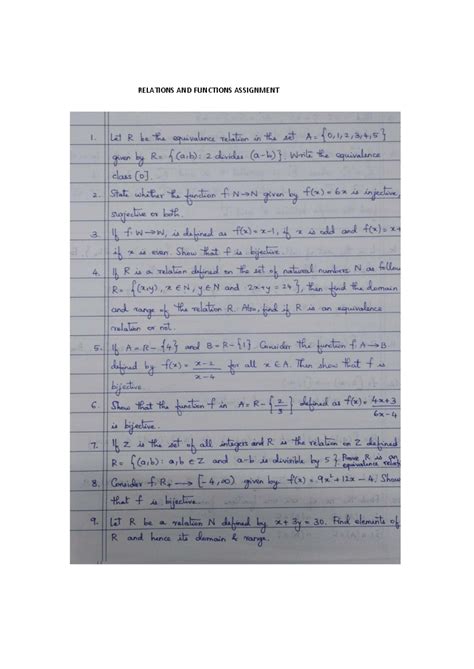 RELATIONS AND FUNCTIONS ASSIGNMENT
1. Let R be the equivalence relation in the set A = {0,1,2,3,4,5}
given by R = {(a,b): 2 divides (a-b)}. Write the equivalence
class [0].
2. State whether the function f: N→N given by f(x) = 6x is injective,
surjective or both.
3. If f: W→W, is defined as f(x) = x-1, if x is odd and f(x) = x+
if x is even. Show that f is bijective.
4. If R is a relation defined on the set of natural numbers N as follow
R = {(x,y), x∈N, y∈N and 2x+y = 24}, then find the domain
and range of the relation R. Also, find if R is an equivalence
relation or not.
5. If A = R-{4} and B = R-{1}. Consider the function f: A→B
defined by f(x) = x-2/x-4 for all x∈A. Then show that f is
bijective.
6. Show that the function f in A = R-{2/3} defined as f(x) = 4x+3/6x-4
is bijective.
7. If Z is the set of all integers and R is the relation on Z defined
R = {(a,b): a,b∈Z and a-b is divisible by 5}. Prove R is an
equivalence relat
8. Consider f: R+ → [-4,∞) given by f(x) = 9x²+12x-4. Show
that f is bijective.
9. Let R be a relation N defined by x+3y = 30. Find elements of
R and hence its domain & range.